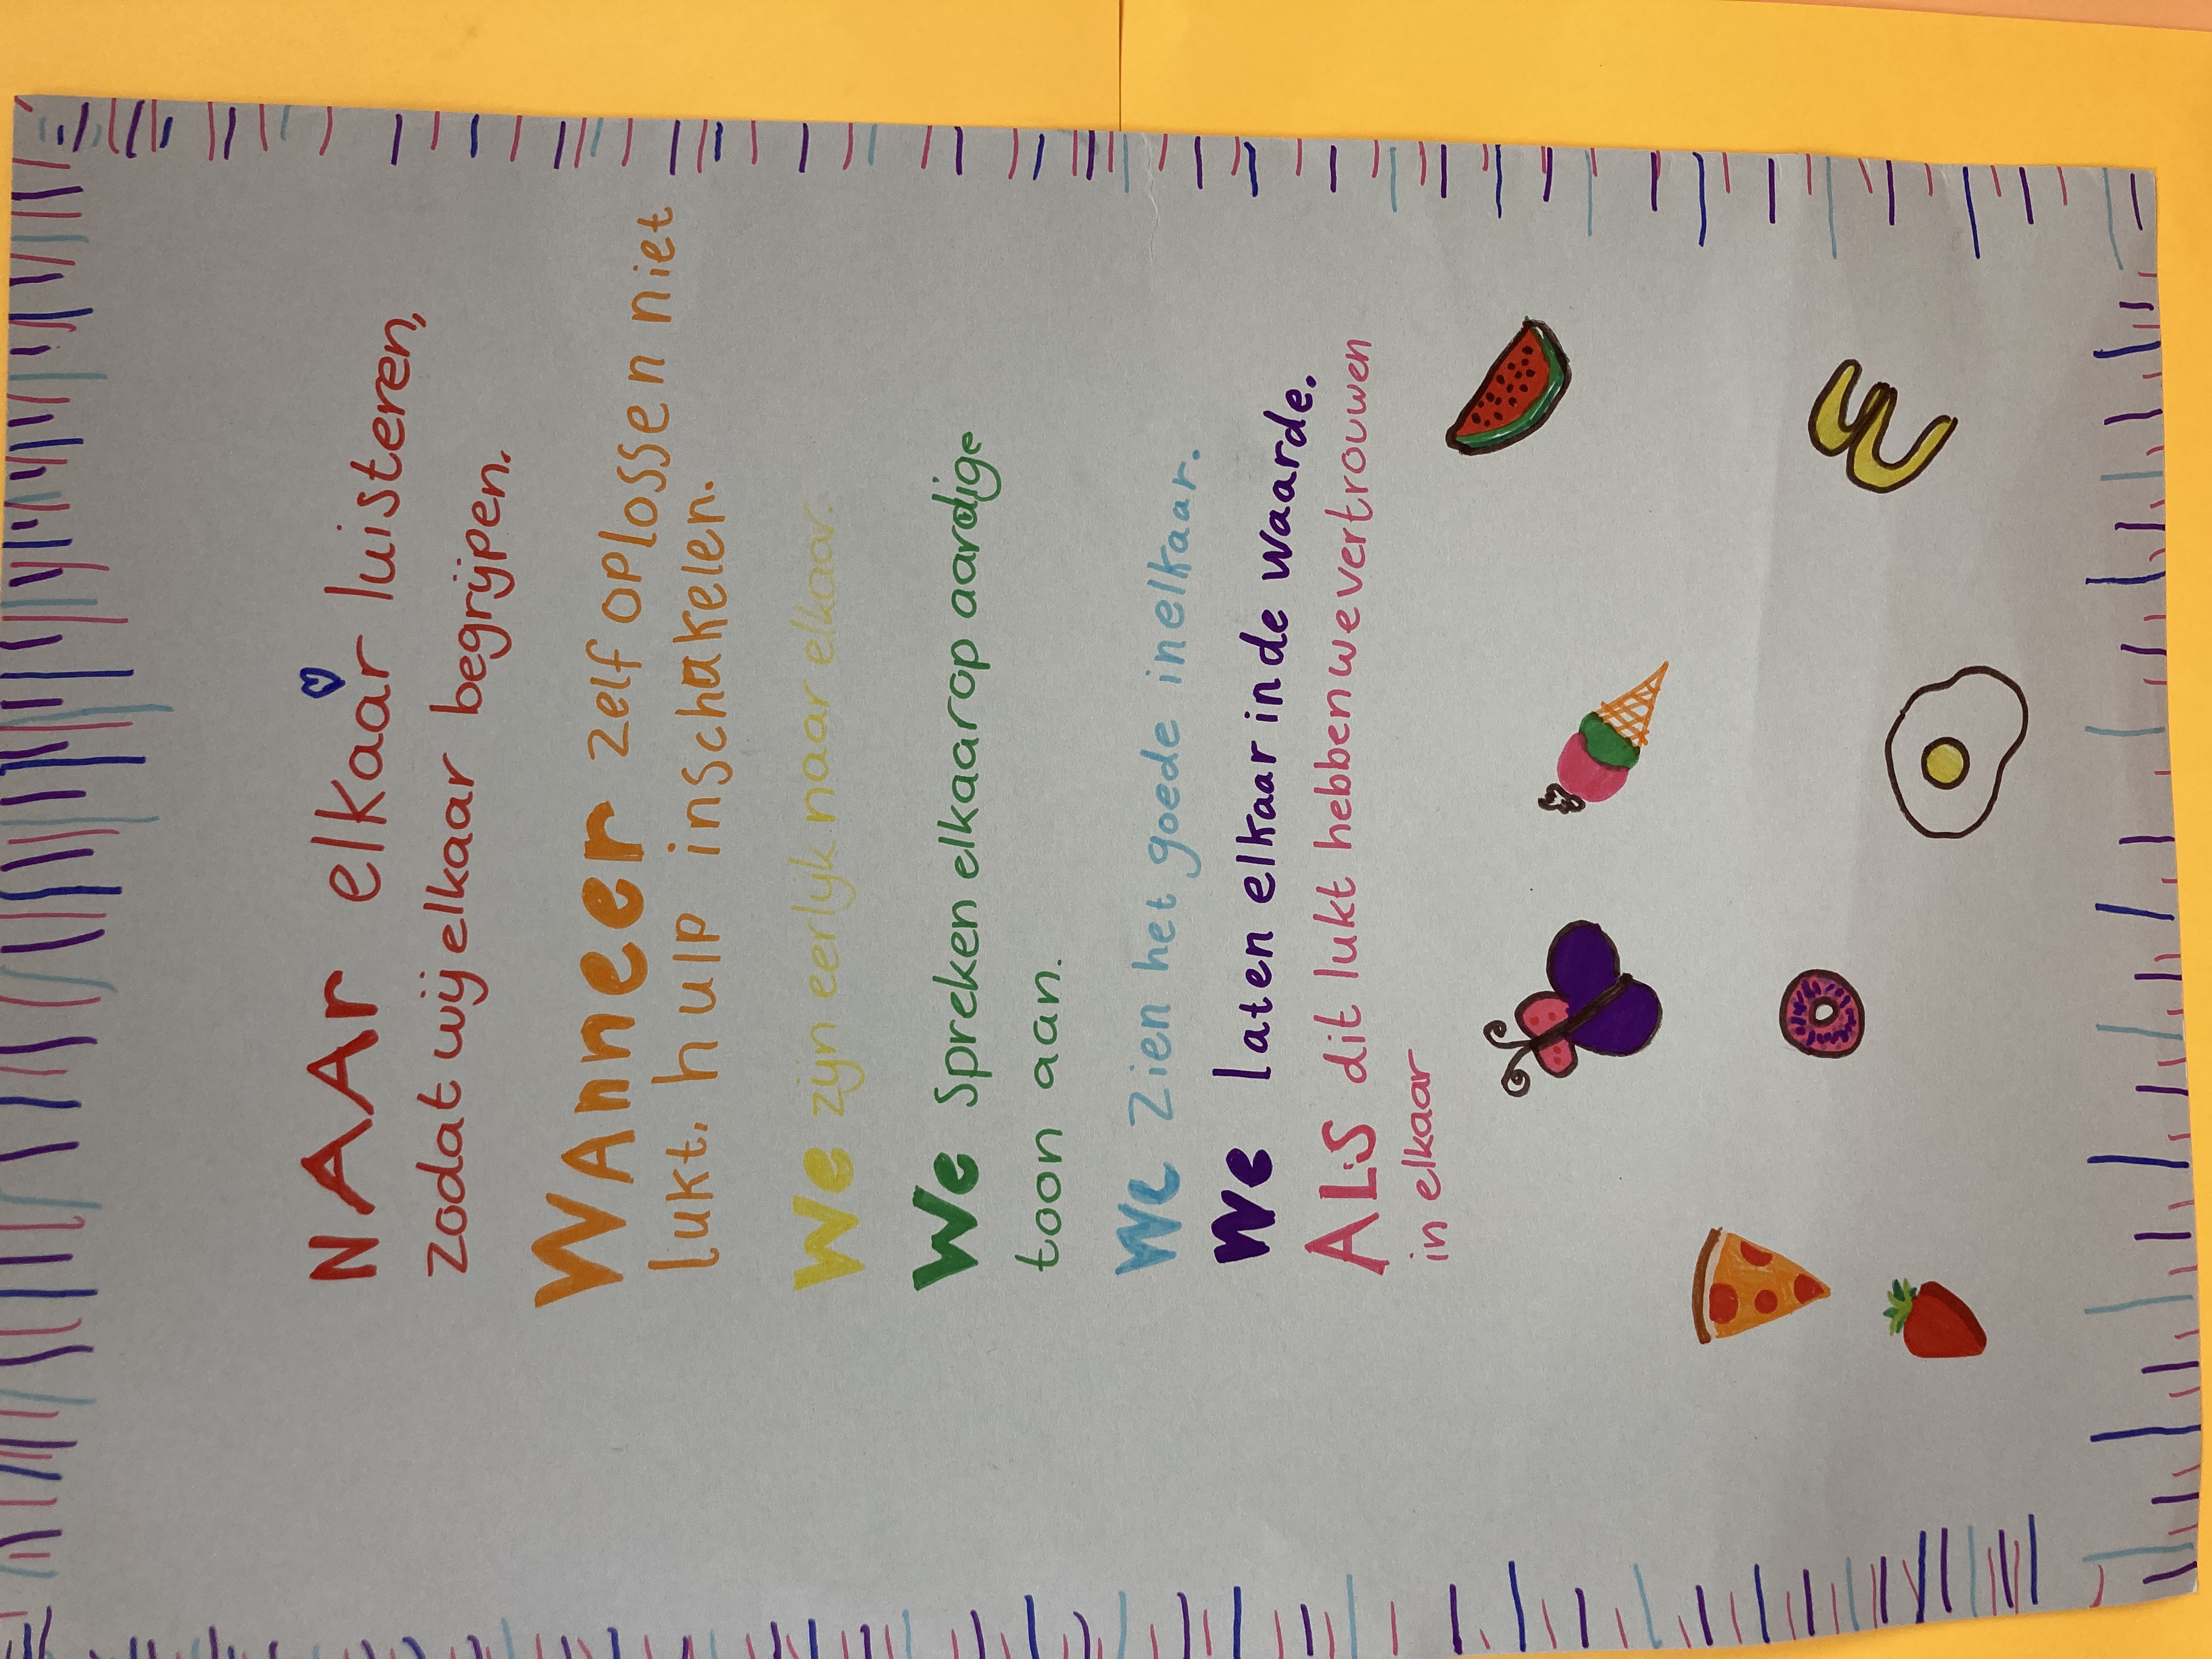 NAAr elkaar luisteren,
zodat wij elkaar begrijpen.
WAnneer zelf oplossen niet
lukt, hulp inschakelen.
We zijn eerlijk naar elkaar.
We spreken elkaar op aardige
toon aan.
We zien het goede in elkaar.
We laten elkaar in de waarde.
ALS dit lukt hebben we vertrouwen
in elkaar